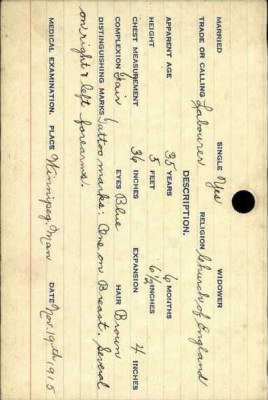 MARRIED SINGLE Yes WIDOWER
TRADE OR CALLING Labourer RELIGION Church of England
DESCRIPTION.
APPARENT AGE 35 YEARS 6 MONTHS
HEIGHT 5 FEET 6½ INCHES
CHEST MEASUREMENT 36 INCHES EXPANSION 4 INCHES
COMPLEXION Fair EYES Blue HAIR Brown
DISTINGUISHING MARKS Tattoo marks: One on Breast, several
on right & left forearms.
MEDICAL EXAMINATION. PLACE Winnipeg. Man DATE Nov. 19th, 1915